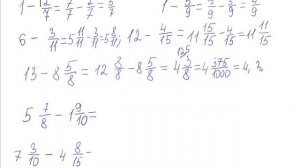 1 - 2/7 = 7/7 - 2/7 = 5/7
6 - 3/11 = 5 11/11 - 3/11 = 5 8/11, 12 - 4/15 = 11 15/15 - 4/15 = 11 11/15
13 - 8 5/8 = 12 8/8 - 8 5/8 = 4 3/8 = 4 375/1000 = 4,3
5 7/8 - 1 9/10 =
7 3/10 - 4 8/15 -